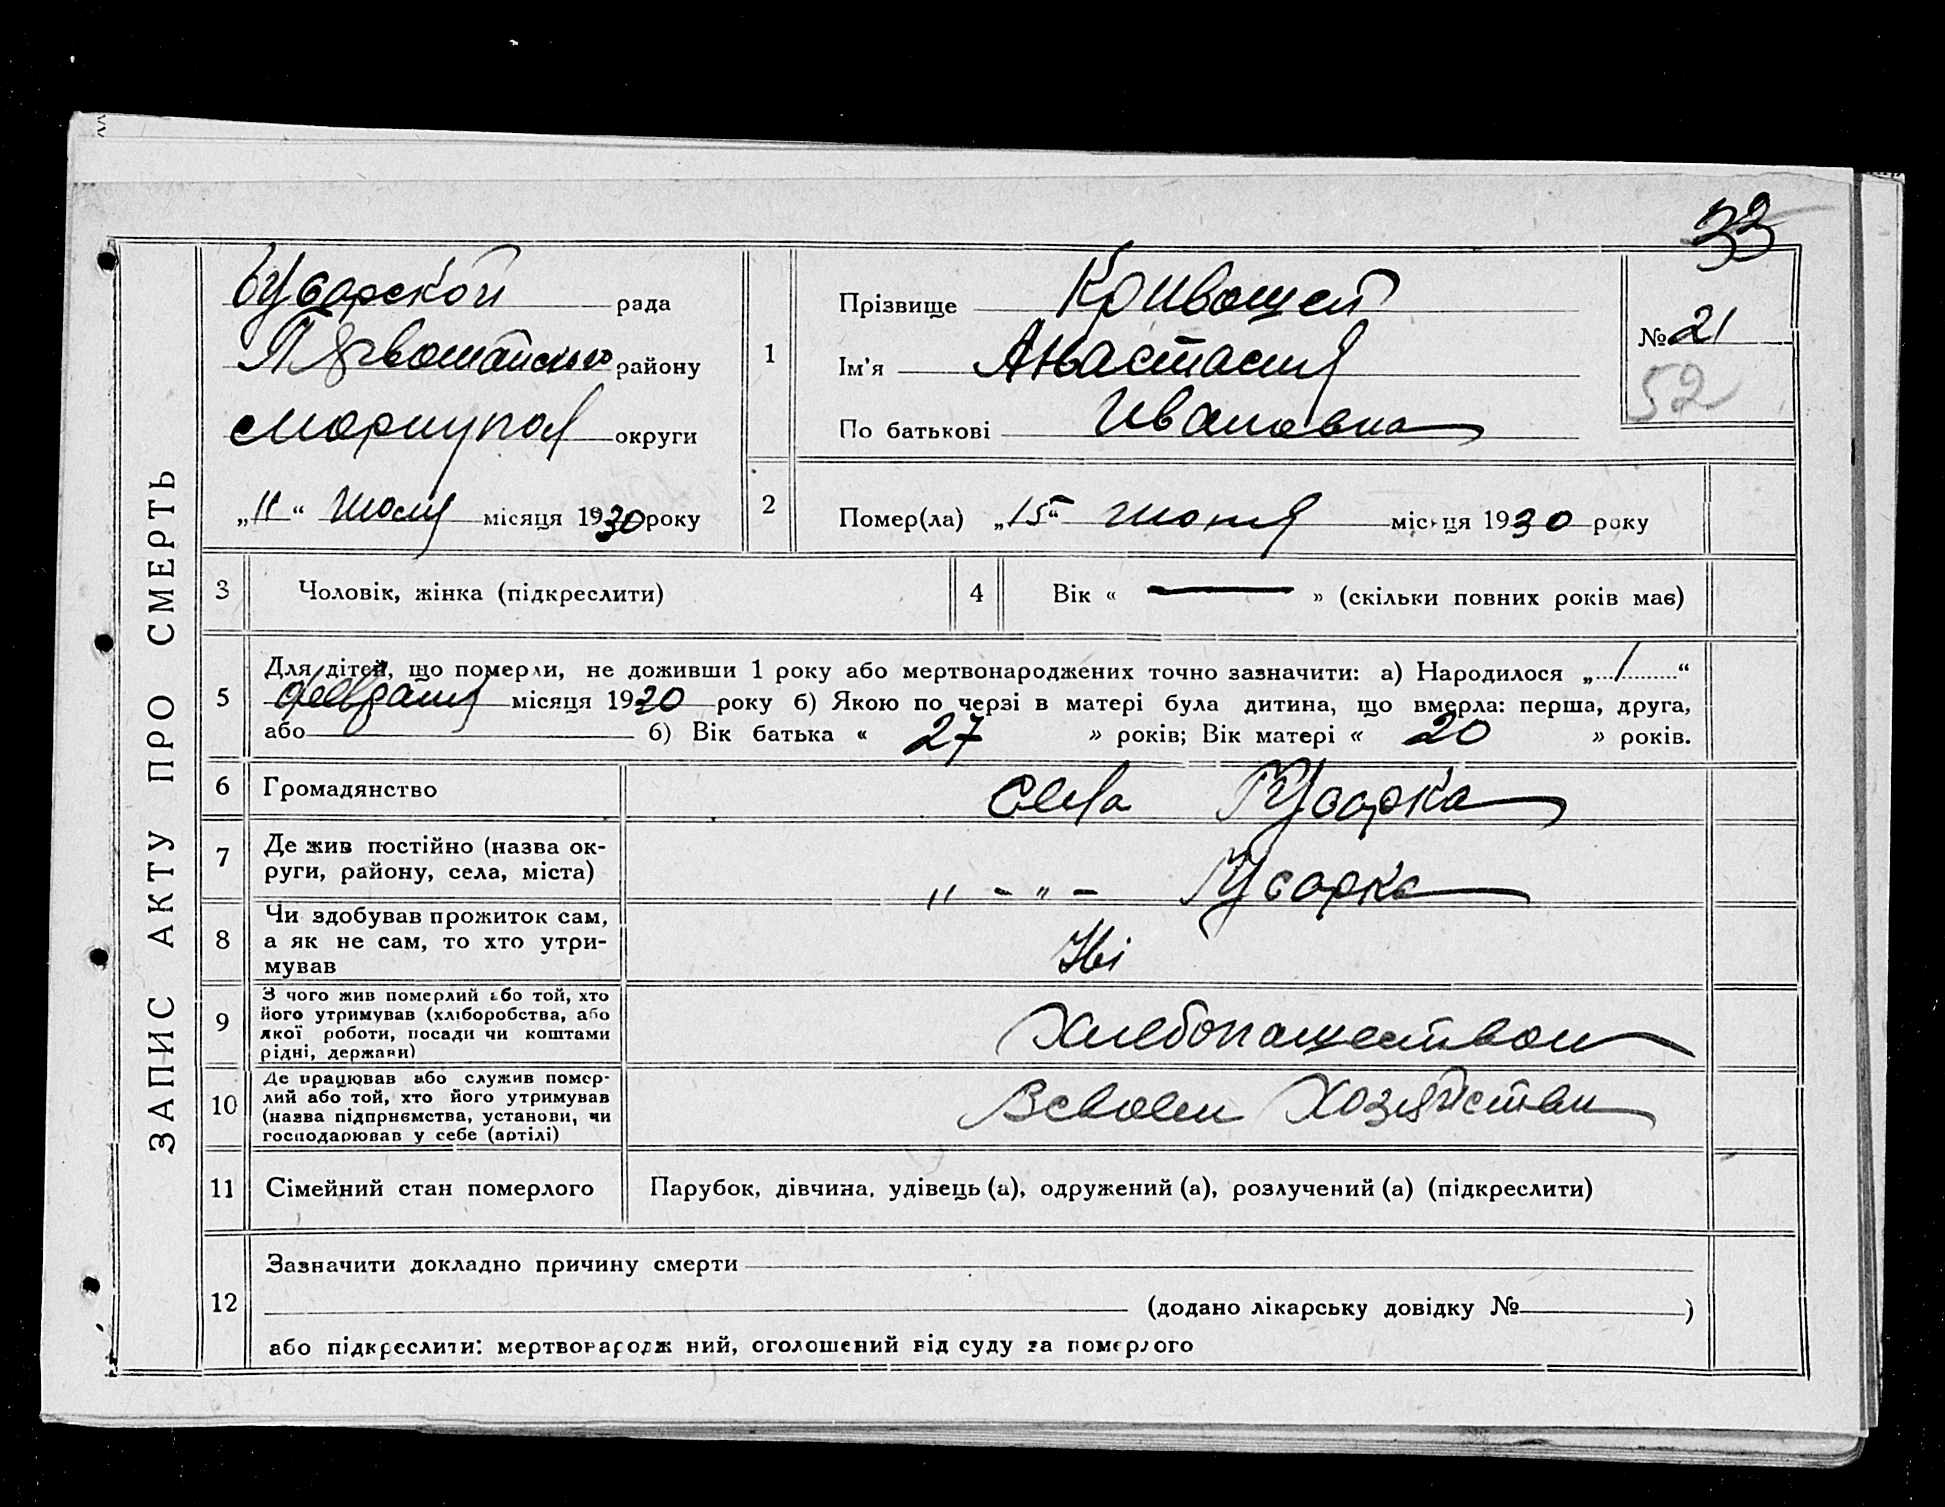 33
ЗАПИС АКТУ ПРО СМЕРТЬ
Гусарской рада
Першотравневого району
Мариупол округи
„11“ июля місяця 1930 року
1
Прізвище Кривошей
Ім'я Анастасия
По батькові Ивановна
№ 21
52
2
Помер(ла) „15“ июня місяця 1930 року
3 Чоловік, жінка (підкреслити)
4 Вік « — » (скільки повних років має)
5 Для дітей, що померли, не доживши 1 року або мертвонароджених точно зазначити: а) Народилося „ 1 “
февраля місяця 1930 року б) Якою по черзі в матері була дитина, що вмерла: перша, друга,
або б) Вік батька « 27 » років; Вік матері « 20 » років.
6 Громадянство села Гусарка
7 Де жив постійно (назва ок-
руги, району, села, міста) „ - „ - Гусарка
8 Чи здобував прожиток сам,
а як не сам, то хто утри-
мував Ні
9 З чого жив померлий або той, хто
його утримував (хліборобства, або
якої роботи, посади чи коштами
рідні, держави) Хлебопашеством
10 Де працював або служив помер-
лий або той, хто його утримував
(назва підприємства, установи, чи
господарював у себе (артілі) Всвоем Хозяйстви
11 Сімейний стан померлого Парубок, дівчина, удівець (а), одружений (а), розлучений (а) (підкреслити)
12 Зазначити докладно причину смерти
(додано лікарську довідку № )
або підкреслити: мертвонародж ний, оголошений від суду за померлого